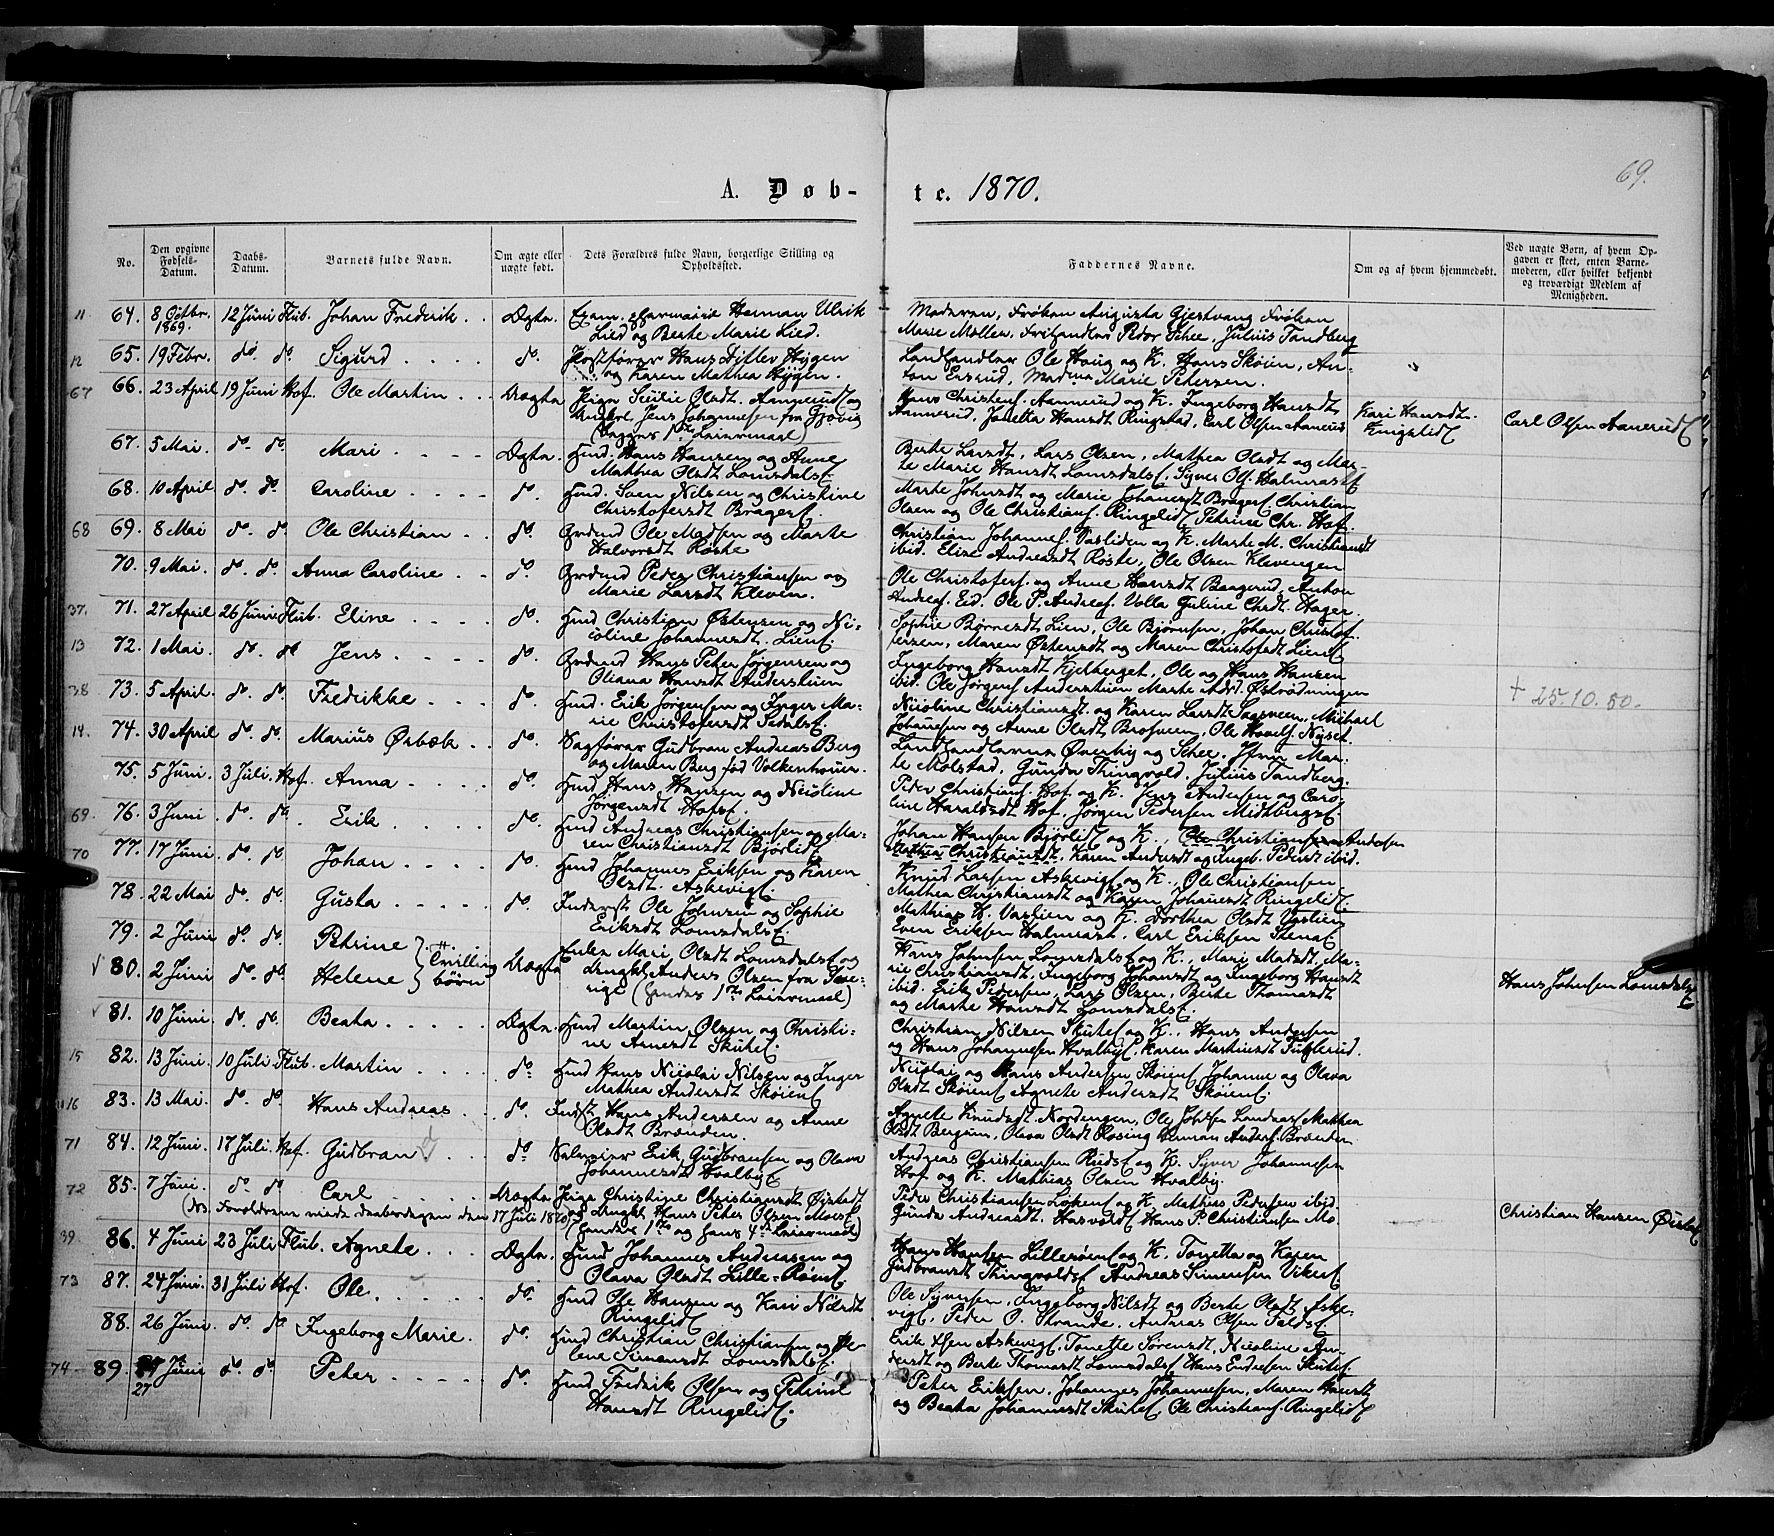 69.
A. Døb-
te. 1870.
No.
Den opgivne Fødsels-Datum.
Daabs-Datum.
Barnets fulde Navn.
Om ægte eller uægte født.
Dets Forældres fulde Navn, borgerlige Stilling og Opholdssted.
Faddernes Navne.
Om og af hvem hjemmedøbt.
Ved uægte Børn, af hvem Opgaven er skeet, enten Barnemoderen, eller hvilket bekjendt og troværdigt Medlem af Menigheden.
11. 64. 8 Octbr. 1869. 12 Juni Flub. Johan Frederik. Ægte. Exam. Farmacie Herman Ulrik
Lied og Berte Marie Lied.
Moderen, Frøken Augusta Gjestvang Frøken
Marie Møller, Frihandler Peder Schee, Julius Tandberg
12 65. 19 Febr. do. do. Sigurd do. Hans Ditlev Hygen
og Karen Mathea Hygen.
Landhandler Ole Haug og K. Hans Skøien, An-
ton Ersrud, Madme Marie Petersen.
67 66. 23 April 19 Juni Hof. Ole Martin Uægte Pige Cecilie Olsdt. Aannerud og
Ungkrl. Jens Johannesen fra Gjøvig
(begges 1ste Leiermaal)
Hans Christens. Aannerud og K. Ingeborg Hansdt
Aannerud, Jonetta Hansdt Ringstad, Carl Olsen Aanerud
Kari Hansdt.
Carl Olsen Aanerud
67. 5 Mai. do. do. Mari Ægte. Husmd. Hans Hansen og Anne
Mathea Olsdt Lomsdalse.
Berte Larsdt, Lars Olsen, Mathea Olsdt og Mar-
te Marie Hansdt Lomsdalse. Syver Ols. Halmrast
68. 10 April do. do. Caroline do. Husmd. Søren Nilsen og Christine
Christofersdt Brager.
Marte Johnsdt og Marie Johannesdt Brager Christian
Olsen og Ole Christians. Ringelie Petrine Chr. Hof.
68 69. 8 Mai do. do. Ole Christian do. Grdmd Ole Madsen og Marte
Halvorsdt Røste
Christian Johannes. Vaslien og K. Marte M. Christiansdt
ibid. Elise Andreasdt Røste, Ole Olsen Klevengen
70. 9 Mai. do. do. Anna Caroline do. Grdmd Peder Christiansen og
Marie Larsdt Kleven.
Ole Christofers. og Anne Hansdt Bagerud, Anton
Andreas. Eid. Ole P. Andreas. Volla Guline Chrdt. Hager.
37. 71. 27 April 26 Juni Flub. Eline do. Husmd Christian Østensen og Ni-
coline Johannesdt. Lien.
Sophie Bjørnesdt Lien, Ole Bjørnsen, Johan Christof-
fersen, Maren Østensdt og Maren Christofsdt Lien
13 72. 1 Mai. do. do. Jens do. Grdmd Hans Peter Jørgensen og
Oliana Hansdt Anderstuen
Ingeborg Hansdt Kjelberget, Ole og Hans Hansen
ibid. Ole Jørgens Anderstuen Marte Østrødningen
38 73. 5 April. do. do. Fredrikke do. Husmd. Erik Jørgensen og Inger Ma-
rie Christofersdt Sedals.
Nicoline Christiansdt. og Karen Larsdt Sagsveen, Michael
Johansen og Anne Olsdt Brosveen, Ole Nyset.
+ 25.10.50.
14. 74. 30 April do. do. Marius Ørbæk do. Sagfører Gudbran Andreas Berg
og Maren Berg fød Volkenhouer.
Landhandlerne Øverby og Schee, Mar-
te Molstad, Gunda Thingvold, Julius Tandberg.
75. 5 Juni. 3 Juli. Hof. Anna do. Husmd Hans Hansen og Nicoline
Jørgensdt Hofs.
Peder Christians. Hof og K. Jens Andersen og Caro-
line Haraldsdt Hof, Jørgen Pedersen Midtbergs.
69. 76. 3 Juni do. do. Erik do. Husmd Andreas Christiansen og Ma-
ren Christiansdt Bjørlie
Johan Hansen Bjørlie og K., Christiansen Andersen
Mathea Christiansdt, Karen Andersdt og Ingeb. Pedersdt ibid.
70 77. 17 Juni do. do. Johan do. Husmd Johannes Eriksen og Karen
Olsdt. Askevig.
Knud Larsen Askevig og K., Ole Christiansen
Mathea Christiansdt og Karen Johansdt Ringelie.
78. 22 Mai do. do. Gusta do. Inderst Ole Johnsen og Sophie
Eriksdt Lomsdals.
Mathias H. Vaslien og K. Dorthea Olsdt Vaslien
Even Eriksen Halmrast, Carl Eriksen Stena
79. 2 Juni do. do. Petrine } Tvilling-
√ 80. 2 Juni do. do. Helene } børn Uægte Enken Mari Olsdt Lomsdals og
Ungkl Anders Olsen fra Sve-
rige (hendes 1ste Leiermaal)
Hans Johnsen Lomsdals og K., Mari Madsdt, Ma-
rie Christiansdt, Ingeborg Johansdt og Ingeborg Hansdt
ibid. Erik Pedersen, Lars Olsen, Berte Thomasdt
og Marte Hansdt Lomsdals.
Hans Johnsen Lomsdals
√ 81. 10 Juni do. do. Beata Ægte. Husmd Martin Olsen og Christi-
ne Arnesdt Skute.
Christian Nilsen Skute og K., Hans Andersen
og Hans Johannesen Hvalby, Karen Martinsdt
15 82. 13 Juni. 10 Juli Flub. Martin do. Husmd Hans Nicolai Nilsen og Inger
Mathea Andersdt Skøien.
Nicolai og Hans Andersen Skøien, Johanne og Olava
Olsdt Skøien Agnete Andersdt Skøien.
16 83. 13 Mai. do. do. Hans Andreas do. Indst Hans Andersen og Anne
Olsdt Brænden.
Agnete Knudsdt Nordengen, Ole Mathea
Olsdt Bergum, Olava Olsdt Rosing Herman Anders. Brænden
71 84. 12 Juni. 17 Juli. Hof. Gudbran do. Selveier Erik Gudbransen og Olava
Johannesdt Hvalby
Andreas Christiansen Ruds og K. Syver Johannesen
Hof og K. Mathias Olsen Hvalby.
72 85. 7 Juni. do. do. Carl Uægte Pige Christine Christiansdt Øistad
og Ungkl Hans Peter Olsen Moe
(hendes 1ste og hans 4de Leiermaal)
(NB. Forældrene viede daabsdagen den 17 Juli 1870)
Peder Christiansen Løken og K. Mathias Pedersen ibid.
Gunda Andreasdt. Hasvold Hans P. Christiansen Mo.
Christian Hansen
39. 86. 4 Juni 23 Juli Flub. Agnete Ægte. Husmd Johannes Andreasen og
Olava Olsdt Lille-Røine
Hans Hansen Lillerøien og K. Tonetta og Karen
Gudbransdt Thingvolds. Andreas Simensen Viken
73 87. 24 Juni. 31 Juli Hof. Ole do. Husmd Ole Hansen og Kari Nilsdt
Ringelie
Ole Syversen, Ingeborg Nilsdt og Berte Olsdt Aske-
vig, Peder O. Strande, Andreas Olsen Felds.
88. 26 Juni. do. do. Ingeborg Marie. do. Husmd Christian Christiansen og He-
lene Simensdt Lomsdals.
Erik Olsen Askevig, Tonette Sørensdt, Nicoline An-
dersdt og Berte Thomasdt Lomsdals Hans Endresen Skute
74 89. 27 Juni do. do. Peter do. Husmd Fredrik Olsen og Petrine
Hansdt Ringelie.
Peter Eriksen, Johannes Johannesen, Maren Hansdt
og Beata Johannesdt Skute Ole Christians. Ringelie